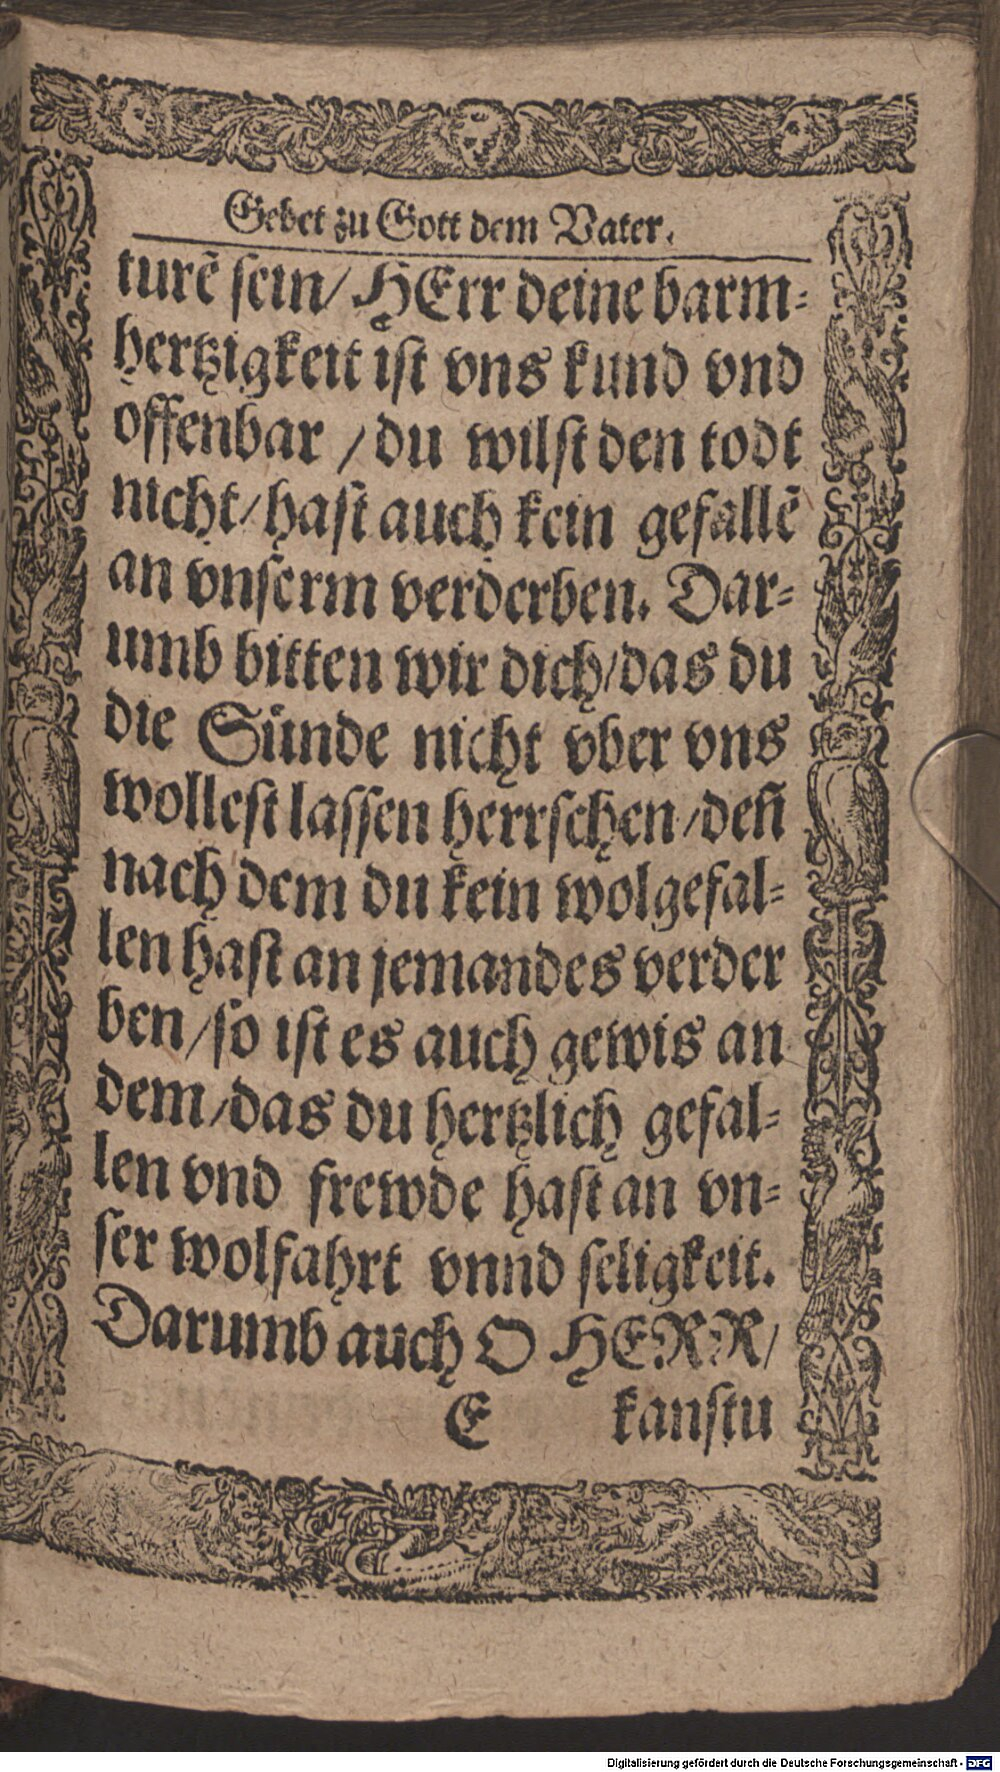 Gebet zu Gott dem Vater.
turẽ sein/ HErr deine barm-
hertzigkeit ist vns kund vnd
offenbar / du wilst den todt
nicht/ hast auch kein gefallẽ
an vnserm verderben. Dar-
umb bitten wir dich/ das du
die Sünde nicht vber vns
wollest lassen herrschen / deñ
nach dem du kein wolgefal-
len hast an jemandes verder
ben/ so ist es auch gewis an
dem/ das du hertzlich gefal-
len vnd frewde hast an vn-
ser wolfahrt vnnd seligkeit.
Darumb auch O HERR/
E kanstu
Digitalisierung gefördert durch die Deutsche Forschungsgemeinschaft - DFG